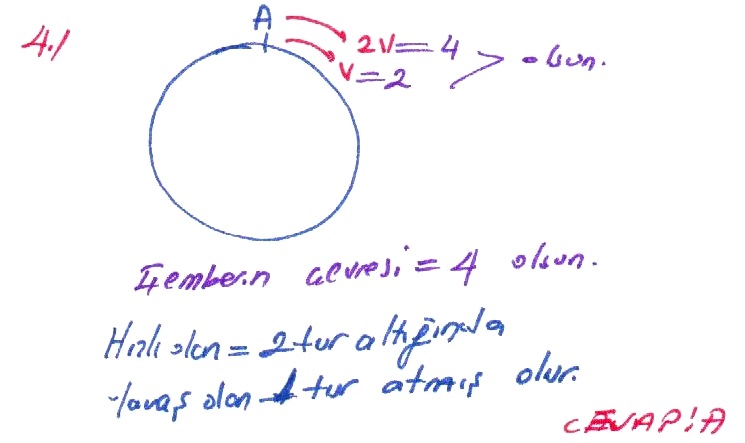 4.)
A
2V = 4
V = 2 > olsun.
Çemberin çevresi = 4 olsun.
Hızlı olan = 2 tur attığında
Yavaş olan 1 tur atmış olur.
CEVAP: A